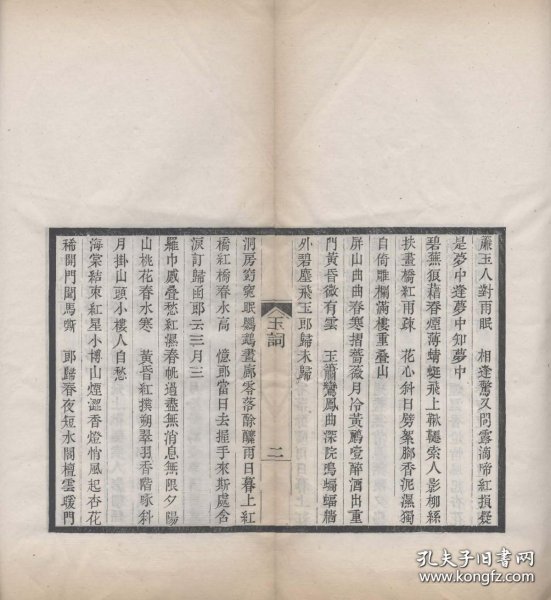 蕭玉人對雨眠　相逢驚又問露滴啼紅損疑
是夢中逢夢中知夢中
碧蕪狼藉春煙薄蜻蜓飛上鞦韆索人影柳絲
扶畫橋紅雨疎　花心斜日劈絮腳香泥濕獨
自倚雕欄滿樓重疊山
屏山曲曲春寒摺薔薇月冷黃鸝噎醉酒出重
門黃昏微有雲　玉簫鸞鳳曲深院鳴蝙蝠牆
外碧塵飛玉郎歸未歸
洞房窈窕眠鸚鵡畫廊零落酴醾雨日暮上紅
橋紅橋春水高　憶郎當日去握手來斯處含
淚訂歸函郎云三月三
羅巾慼疊愁紅濕春帆過盡無消息無限夕陽
山桃花春水寒　黃昏紅撲朔翠羽香階啄斜
月掛山頭小樓人自愁
海棠結束紅星小博山煙澀香燈悄風起杏花
稀開門聞馬嘶　郎歸春夜短水閣檀雲暖門
玉詞
二
孔夫子旧书网
www.kongfz.com